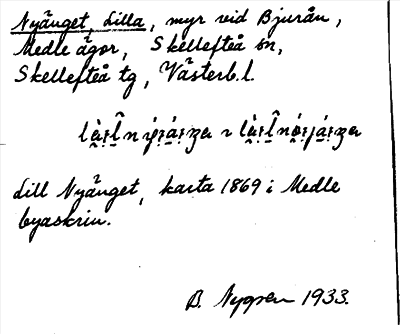 Nyänget, Lilla, myr vid Bjurån,
Medle ägor, Skellefteå sn,
Skellefteå tg, Västerb. l.
Lill Nyänget, karta 1869 i Medle
byaskrin.
B. Nygren 1933.